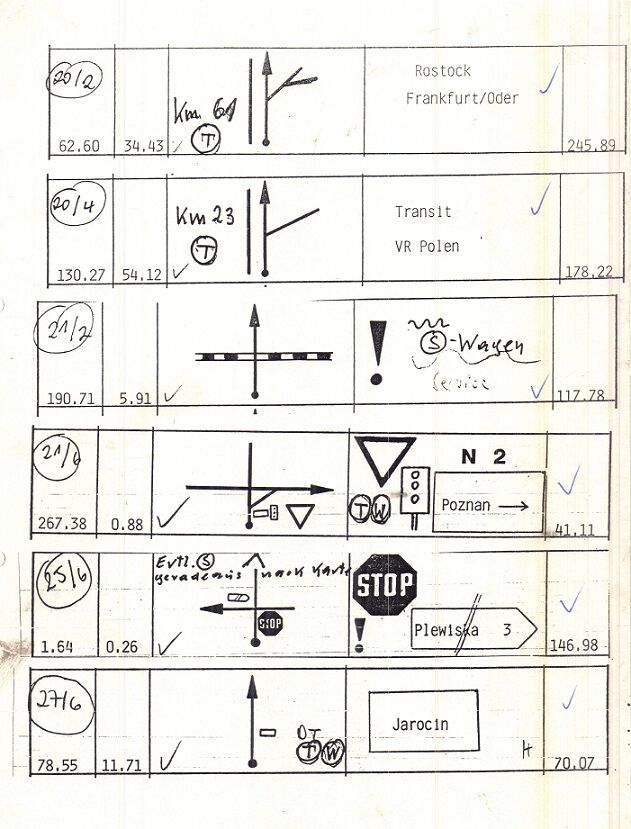 20/2
Km 61
T
Rostock
Frankfurt/Oder
62.60 34.43 245.89
20/4
Km 23
T
Transit
VR Polen
130.27 54.12 178.22
21/2
!
S-Wagen
Service
190.71 5.91 117.78
21/6
N 2
T W
Poznan
267.38 0.88 41.11
25/6
Evtl. S
geradeaus nach Karte
STOP
STOP
!
Plewiska 3
1.64 0.26 146.98
27/6
DT
T W
Jarocin
H
78.55 11.71 70.07